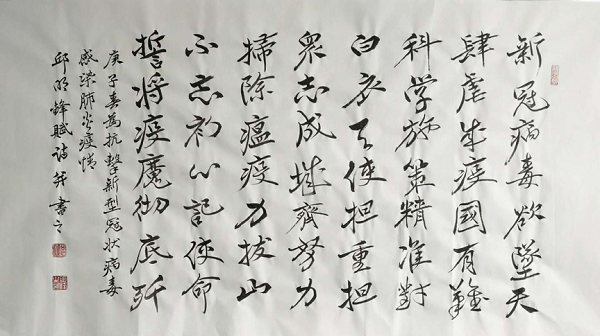 新冠病毒欲墜天
肆虐生疫國有難
科学施策精准對
白衣天使担重担
眾志成城齊努力
掃除瘟疫力拔山
不忘初心記使命
誓將疫魔彻底歼
庚子春為抗擊新型冠状病毒
感染肺炎疫情
邱明鋒賦诗并書之